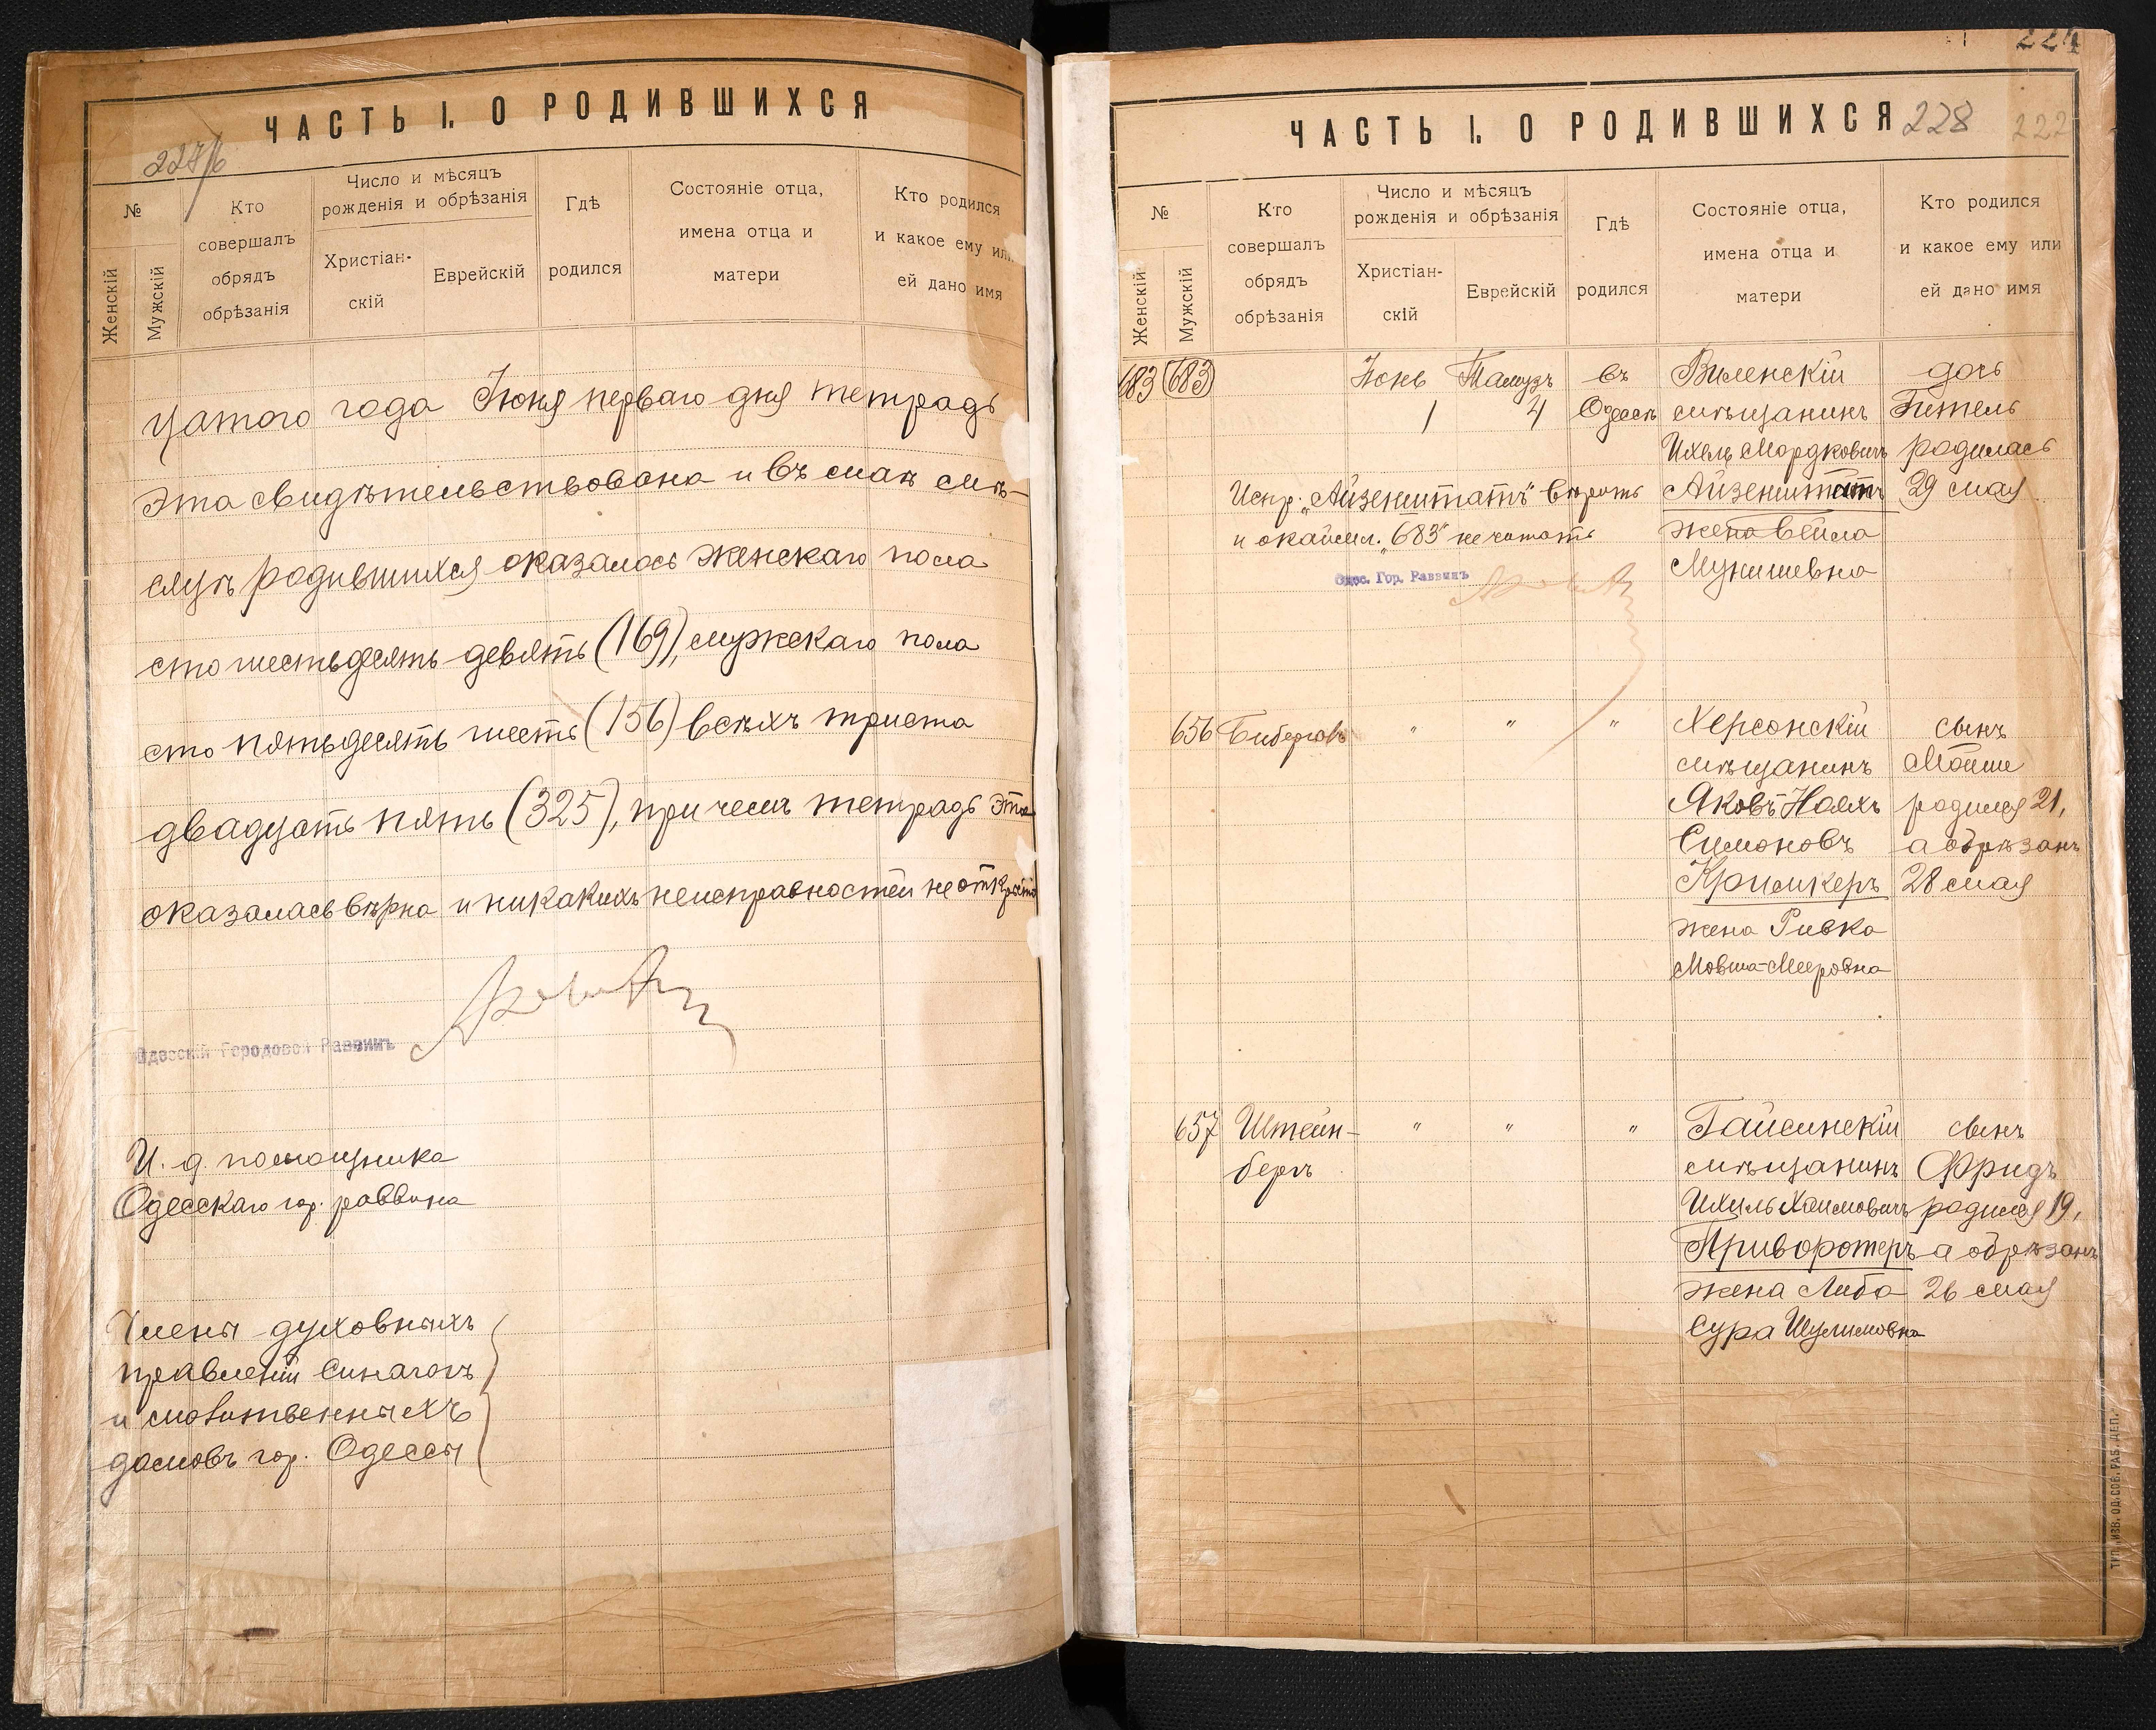 ЧАСТЬ I. О РОДИВШИХСЯ
227/б
№
Женскій
Мужскій
Кто
совершалъ
обрядъ
обрѣзанія
Число и мѣсяцъ
рожденія и обрѣзанія
Христіан-
скій
Еврейскій
Гдѣ
родился
Состояніе отца,
имена отца и
матери
Кто родился
и какое ему или
ей дано имя
цатого года Іюня перваго дня тетрадь
эта свидѣтельствована и въ маѣ мѣ-
сяцѣ родившихся оказалось женскаго пола
сто шестьдесятъ девять (169), мужскаго пола
сто пятьдесятъ шесть (156) всѣхъ триста
двадцать пять (325), при чемъ тетрадь эта
оказалась вѣрна и никакихъ неисправностей не открыто
Одесскій Городовой Раввинъ
И. д. помощника
Одесскаго гор. раввина
Члены духовныхъ
правленій синагогъ
и молитвенныхъ
домовъ гор. Одессы
224
ЧАСТЬ I. О РОДИВШИХСЯ
228
222
№
Женскій
Мужскій
Кто
совершалъ
обрядъ
обрѣзанія
Число и мѣсяцъ
рожденія и обрѣзанія
Христіан-
скій
Еврейскій
Гдѣ
родился
Состояніе отца,
имена отца и
матери
Кто родился
и какое ему или
ей дано имя
683 (683) Іюнь Тамузъ въ Виленскій дочь
1 4 Одессѣ мѣщанинъ Гитель
Ихель Мордковичъ родилась
Испр. „Айзенштатъ" вѣрить Айзенштатъ 29 мая
и окаймл. „683" не читать жена Бейла
Мунишевна
Одес. Гор. Раввинъ
656 Бибергалъ " " " Херсонскій сынъ
мѣщанинъ Мойше
Яковъ Ноахъ родился 21,
Симоновъ а обрѣзанъ
Кримкеръ 28 мая
жена Ривка
Мовша-Мееровна
657 Штейн- " " " Гайсинскій сынъ
бергъ мѣщанинъ Фридъ
Ихиль Хаимовичъ родился 19,
Приворотеръ а обрѣзанъ
жена Либа 26 мая
Сура Шулимовна
ТИП. ИЗВ. ОД. СОВ. РАБ. ДЕП.